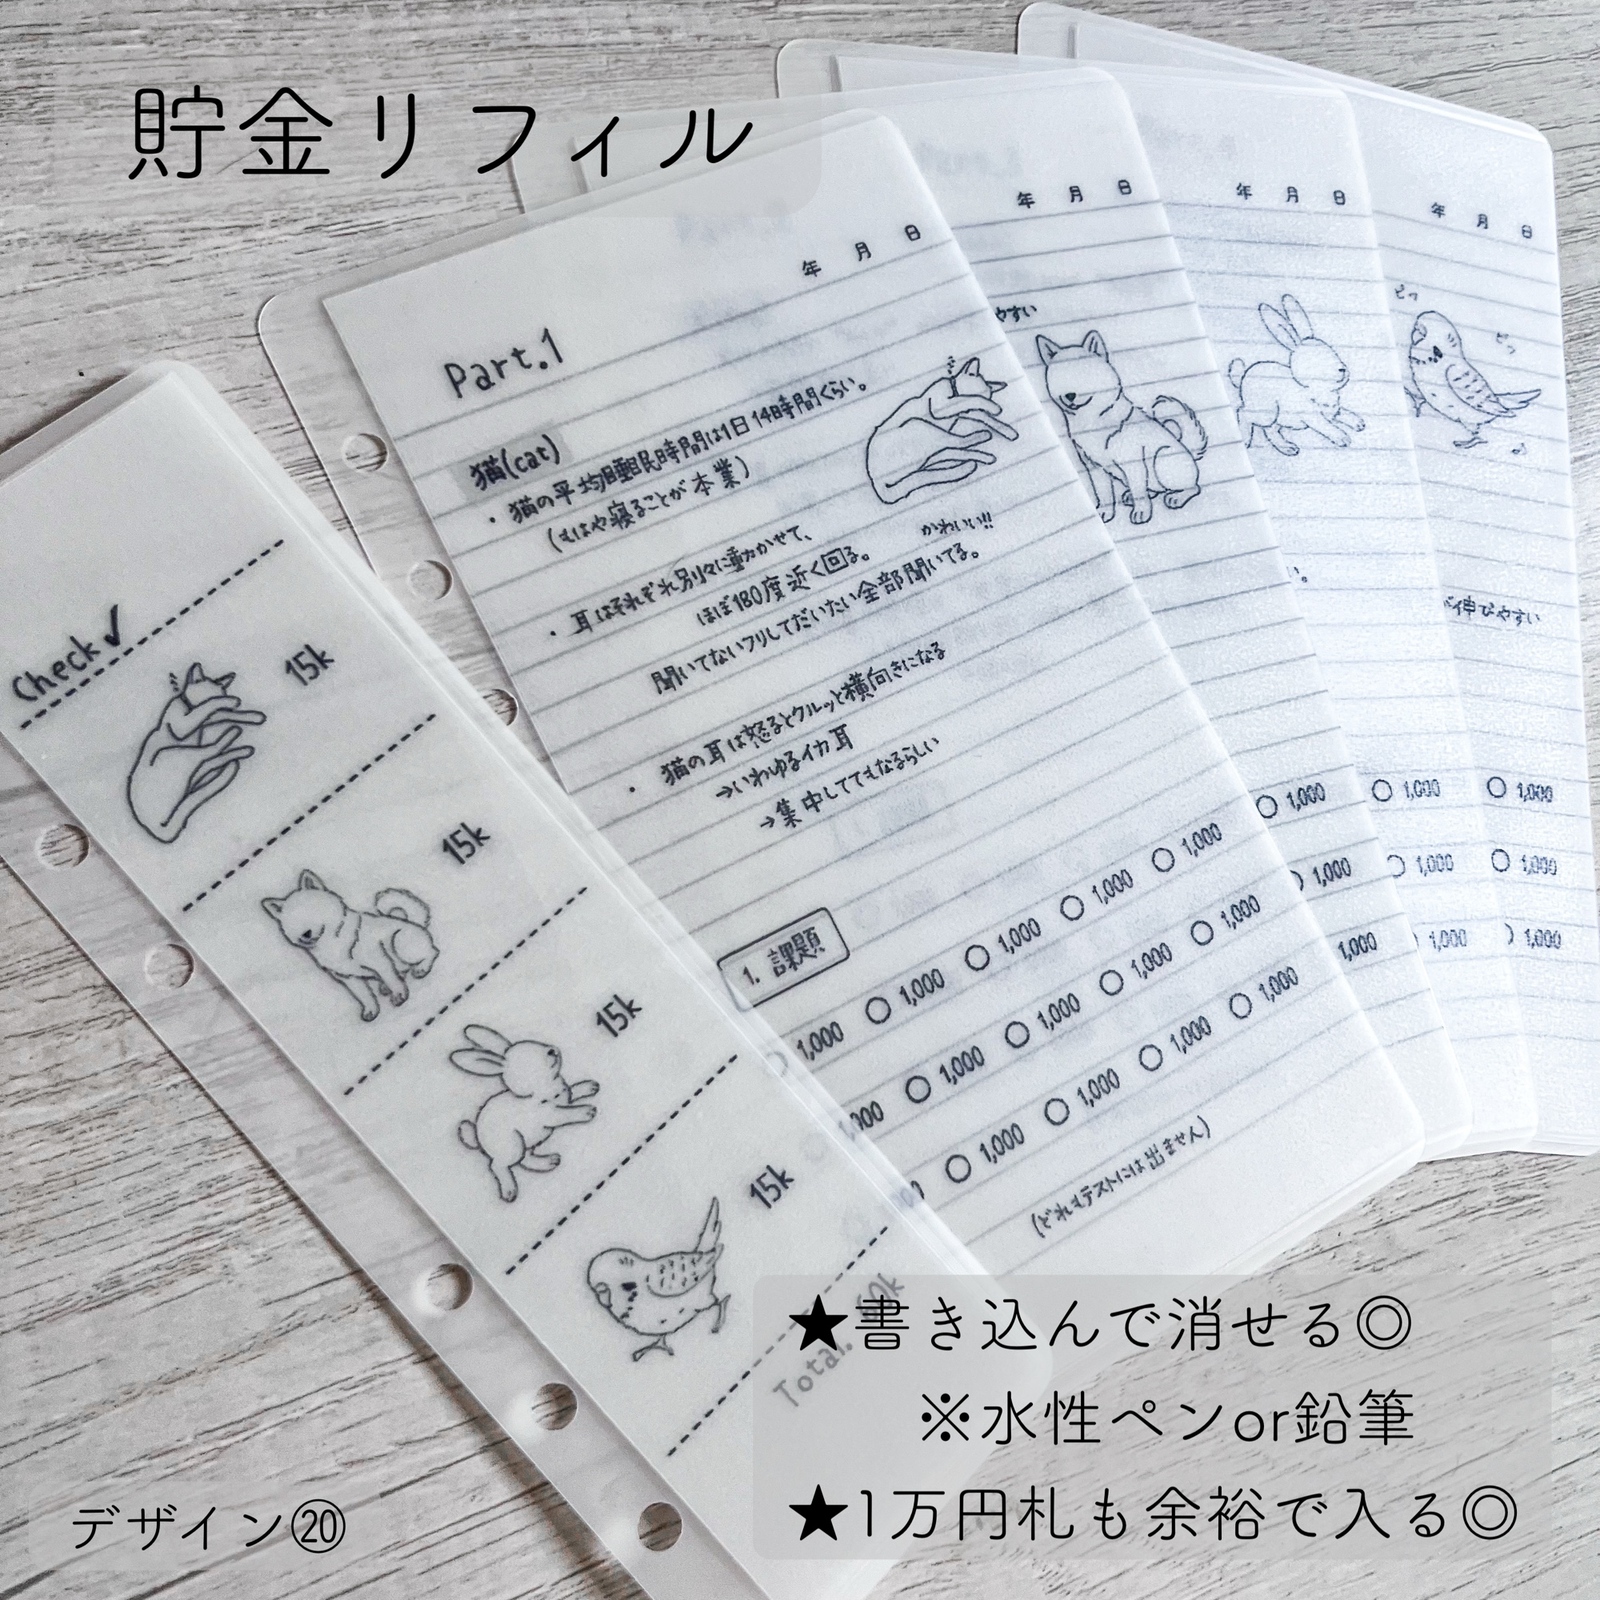 貯金リフィル
年 月 日
Part.1
猫(cat)
・猫の平均睡眠時間は1日14時間くらい。
(もはや寝ることが本業)
・耳はそれぞれ別々に動かせて、
ほぼ180度近く回る。
かわいい!!
聞いてないフリしてだいたい全部聞いてる。
・猫の耳は怒るとクルッと横向きになる
→いわゆるイカ耳
→集中しててもなるらしい
1. 課題
1,000 ○ 1,000 ○ 1,000 ○ 1,000 ○ 1,000
○ 1,000 ○ 1,000 ○ 1,000 ○ 1,000
○ 1,000 ○ 1,000 ○ 1,000 ○ 1,000
(どれもテストには出ません)
年 月 日
やすい
○ 1,000
1,000
1,000
年 月 日
○ 1,000
1,000
1,000
年 月 日
ピッ
ピッ
伸びやすい
○ 1,000
○ 1,000
1,000
Check✓
15k
15k
15k
15k
Total. 60k
★書き込んで消せる◎
※水性ペンor鉛筆
★1万円札も余裕で入る◎
デザイン⑳